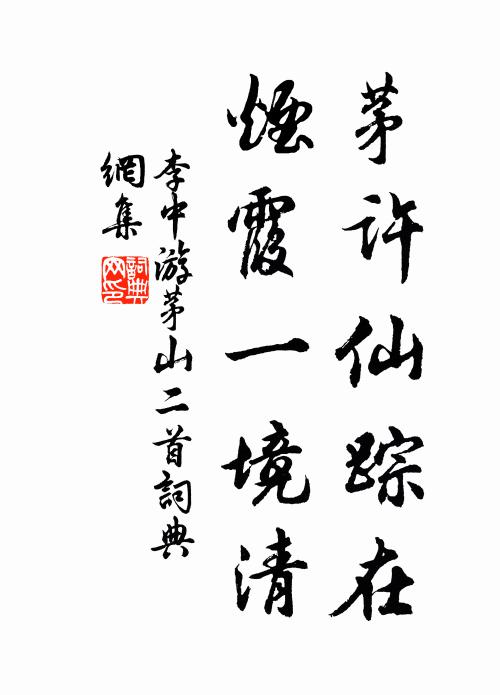 茅许仙踪在
煙霞一境清
李中游茅山二首詞典
網集
詞典
网印